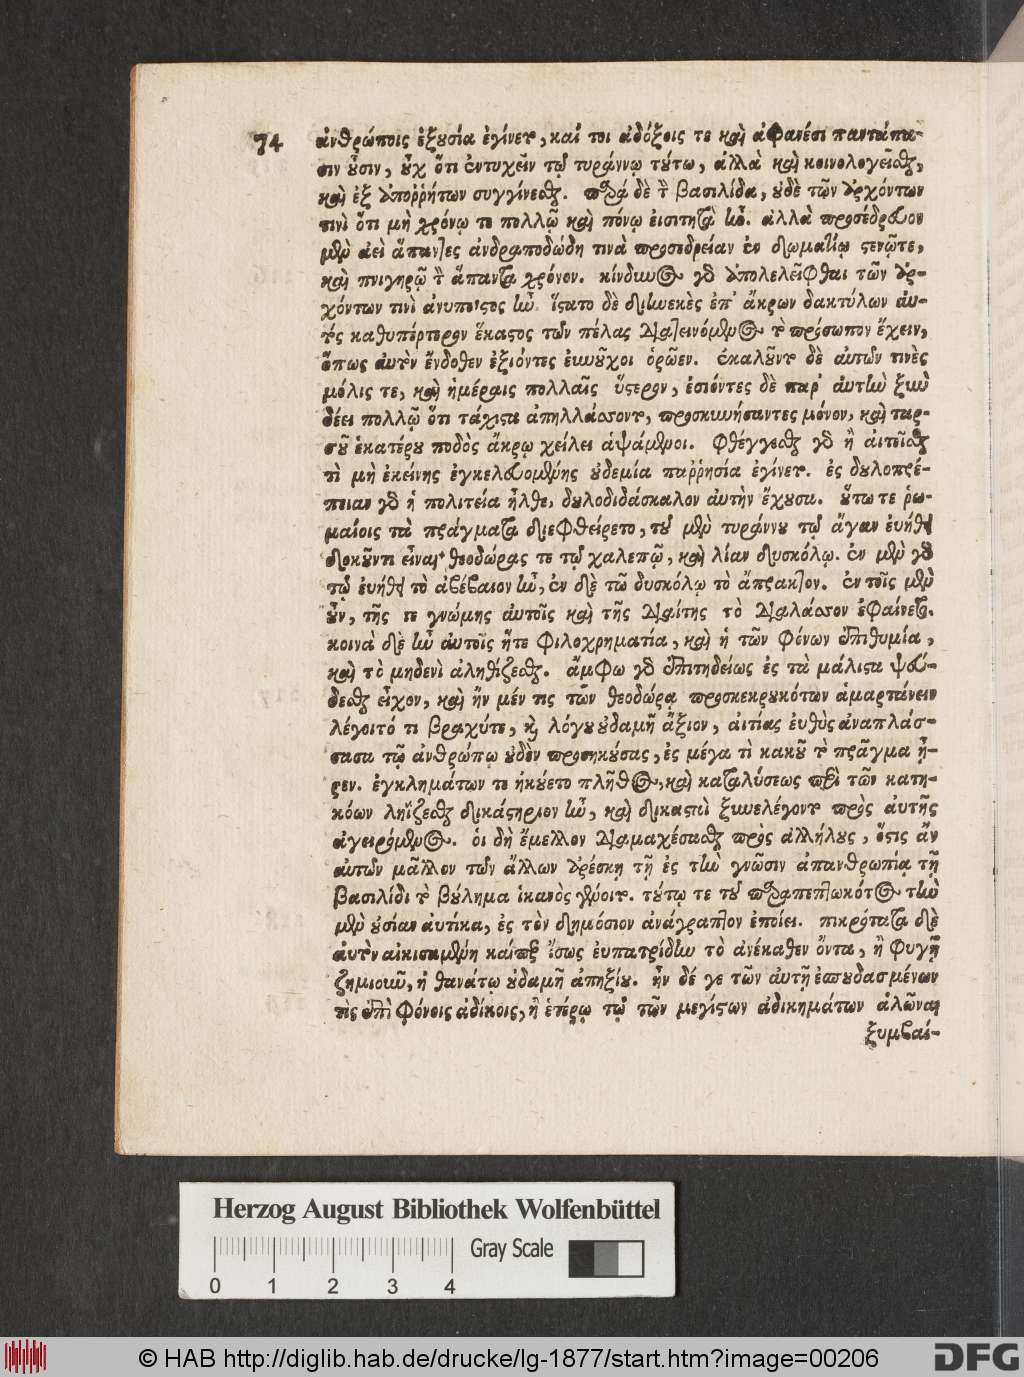 74 ἀνθρώποις ἐξουσία ἐγίνετο, καί τοι ἀδόξοις τε καὶ ἀφανέσι παντάπα-
σιν οὖσιν, οὐχ ὅτι ἐντυχεῖν τῷ τυράννῳ τούτῳ, ἀλλὰ καὶ κοινολογεῖσθαι,
καὶ ἐξ ἀπορρήτων συγγίνεσθαι. παρὰ δὲ τὴν βασιλίδα, οὐδὲ τῶν ἀρχόντων
τινὶ ὅτι μὴ χρόνῳ τε πολλῷ καὶ πόνῳ εἰσιτητὰ ἦν. ἀλλὰ προσέδρευον
μὲν ἀεὶ ἅπαντες ἀνδραποδώδη τινὰ προσεδρείαν ἐν δωματίῳ στενῷτε,
καὶ πνιγηρῷ τὸν ἅπαντα χρόνον. κίνδυνος γὰρ ἀπολελεῖφθαι τῶν ἀρ-
χόντων τινὶ ἀνυποιστος ἦν. ἵστατο δὲ διηνεκὲς ἐπ' ἄκρων δακτύλων αὐ-
τοὺς καθυπέρτερον ἕκαστος τῶν πέλας διατεινόμενος τὸ πρόσωπον ἔχειν,
ὅπως αὐτὸν ἔνδοθεν ἐξιόντες εὐνοῦχοι ὁρῷεν. ἐκαλοῦντο δὲ αὐτῶν τινὲς
μόλις τε, καὶ ἡμέραις πολλαῖς ὕστερον, ἐσιόντες δὲ παρ' αὐτὴν ξὺν
δέει πολλῷ ὅτι τάχιστα ἀπηλλάσσοντο, προσκυνήσαντες μόνον, καὶ ταρ-
σοῦ ἑκατέρου ποδὸς ἄκρῳ χείλει ἁψάμενοι. φθέγγεσθαι γὰρ ἢ αἰτεῖσθαι
τὶ μὴ ἐκείνης ἐγκελευομένης οὐδεμία παρρησία ἐγίνετο. ἐς δουλοπρέ-
πειαν γὰρ ἡ πολιτεία ἦλθε, δουλοδιδάσκαλον αὐτὴν ἔχουσα. οὕτω τε ῥω-
μαίοις τὰ πράγματα διεφθείρετο, τοῦ μὲν τυράννου τῷ ἄγαν εὐήθει
δοκοῦντι εἶναι· θεοδώρας τε τῷ χαλεπῷ, καὶ λίαν δυσκόλῳ. ἐν μὲν γὰρ
τῷ εὐήθει τὸ ἀβέβαιον ἦν, ἐν δὲ τῷ δυσκόλῳ τὸ ἄπρακτον. ἐν τοῖς μὲν
οὖν, τῆς τε γνώμης αὐτοῖς καὶ τῆς διαίτης τὸ διαλάσσον ἐφαίνετο.
κοινὰ δὲ ἦν αὐτοῖς ἥτε φιλοχρηματία, καὶ ἡ τῶν φόνων ἐπιθυμία,
καὶ τὸ μηδενὶ ἀληθίζεσθαι. ἄμφω γὰρ ἐπιτηδείως ἐς τὰ μάλιστα ψεύ-
δεσθαι εἶχον, καὶ ἤν μέν τις τῶν θεοδώρᾳ προσκεκρουκότων ἁμαρτάνειν
λέγοιτό τι βραχύτε, καὶ λόγου οὐδαμῆ ἄξιον, αἰτίας εὐθὺς ἀναπλάσ-
σασα τῷ ἀνθρώπῳ οὐδὲν προσηκούσας, ἐς μέγα τὶ κακοῦ τὸ πρᾶγμα ἦ-
ρεν. ἐγκλημάτων τε ἠκούετο πλῆθος, καὶ καταλύσεως περὶ τῶν κατη-
κόων ληΐζεσθαι δικάστηριον ἦν, καὶ δικασταὶ ξυνελέγοντο πρὸς αὐτῆς
ἀγειρόμενοι. οἱ δὴ ἔμελλον διαμαχέσασθαι πρὸς ἀλλήλους, ὅστις ἂν
αὐτῶν μᾶλλον τῶν ἄλλων ἀρέσκῃ τῇ ἐς τὴν γνῶσιν ἀπανθρωπίᾳ τῇ
βασιλίδι τὸ βούλημα ἱκανὸς γένοιτο. τούτῳ τε τοῦ παραπεπτωκότος τὴν
μὲν οὐσίαν αὐτίκα, ἐς τὸν δημόσιον ἀνάγραπτον ἐποίει. πικρότατα δὲ
αὐτὸν αἰκισαμένη καίπερ ἴσως εὐπατρίδην τὸ ἀνέκαθεν ὄντα, ἢ φυγῇ
ζημιοῦν, ἢ θανάτῳ οὐδαμῆ ἀπηξίου. ἢν δέ γε τῶν αὐτῇ ἐσπουδασμένων
τὶς ἐπὶ φόνοις ἀδίκοις, ἢ ἑτέρῳ τῷ τῶν μεγίστων ἀδικημάτων ἁλῶναι
ξυμβαί-
Herzog August Bibliothek Wolfenbüttel
Gray Scale
0 1 2 3 4
© HAB http://diglib.hab.de/drucke/lg-1877/start.htm?image=00206
DFG